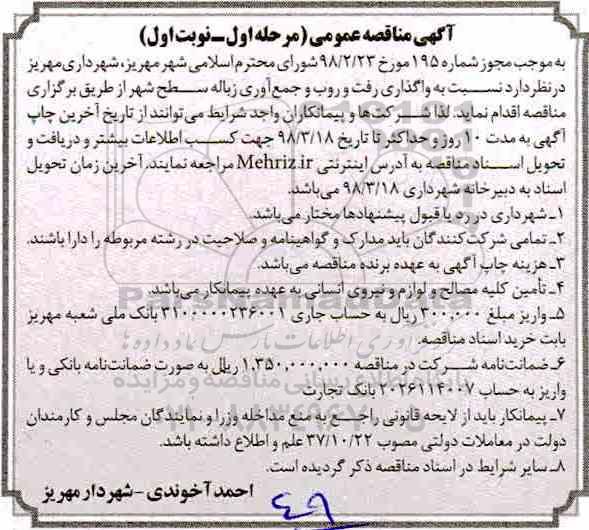 آگهی مناقصه عمومی (مرحله اول ـ نوبت اول)
به موجب مجوز شماره ۱۹۵ مورخ ۹۸/۲/۲۳ شورای محترم اسلامی شهر مهریز، شهرداری مهریز
در نظر دارد نسبت به واگذاری رفت و روب و جمع‌آوری زباله سطح شهر از طریق برگزاری
مناقصه اقدام نماید. لذا شرکت‌ها و پیمانکاران واجد شرایط می‌توانند از تاریخ آخرین چاپ
آگهی به مدت ۱۰ روز و حداکثر تا تاریخ ۹۸/۳/۱۸ جهت کسب اطلاعات بیشتر و دریافت و
تحویل اسناد مناقصه به آدرس اینترنتی Mehriz.ir مراجعه نمایند. آخرین زمان تحویل
اسناد به دبیرخانه شهرداری ۹۸/۳/۱۸ می‌باشد.
۱ـ شهرداری در رد یا قبول پیشنهادها مختار می‌باشد.
۲ـ تمامی شرکت‌کنندگان باید مدارک و گواهینامه و صلاحیت در رشته مربوطه را دارا باشند.
۳ـ هزینه چاپ آگهی به عهده برنده مناقصه می‌باشد.
۴ـ تأمین کلیه مصالح و لوازم و نیروی انسانی به عهده پیمانکار می‌باشد.
۵ـ واریز مبلغ ۳۰۰,۰۰۰ ریال به حساب جاری ۳۱۰۰۰۰۰۲۳۶۰۰۱ بانک ملی شعبه مهریز
بابت خرید اسناد مناقصه.
۶ـ ضمانت‌نامه شرکت در مناقصه ۱,۳۵۰,۰۰۰,۰۰۰ ریال به صورت ضمانت‌نامه بانکی و یا
واریز به حساب ۲۰۲۶۱۱۴۰۰۷ بانک تجارت
۷ـ پیمانکار باید از لایحه قانونی راجع به منع مداخله وزرا و نمایندگان مجلس و کارمندان
دولت در معاملات دولتی مصوب ۳۷/۱۰/۲۲ علم و اطلاع داشته باشد.
۸ـ سایر شرایط در اسناد مناقصه ذکر گردیده است.
احمد آخوندی - شهردار مهریز
۴۹